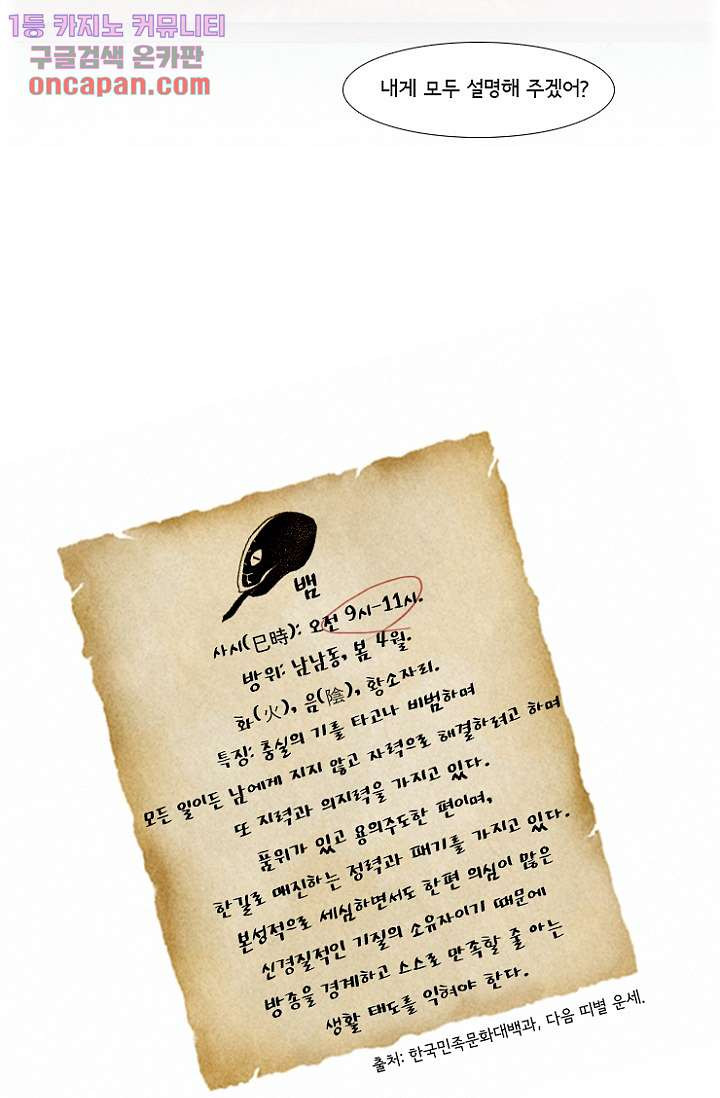 1등 카지노 커뮤니티
구글검색 온카판
oncapan.com
내게 모두 설명해 주겠어?
뱀
사시(巳時): 오전 9시-11시.
방위: 남남동, 봄 4월.
화(火), 음(陰), 황소자리.
특징: 충실의 기를 타고나 비범하며
모든 일이든 남에게 지지 않고 자력으로 해결하려고 하며
또 지력과 의지력을 가지고 있다.
품위가 있고 용의주도한 편이며,
한길로 매진하는 정력과 패기를 가지고 있다.
본성적으로 세심하면서도 한편 의심이 많은
신경질적인 기질의 소유자이기 때문에
방종을 경계하고 스스로 만족할 줄 아는
생활 태도를 익혀야 한다.
출처: 한국민족문화대백과, 다음 띠별 운세.